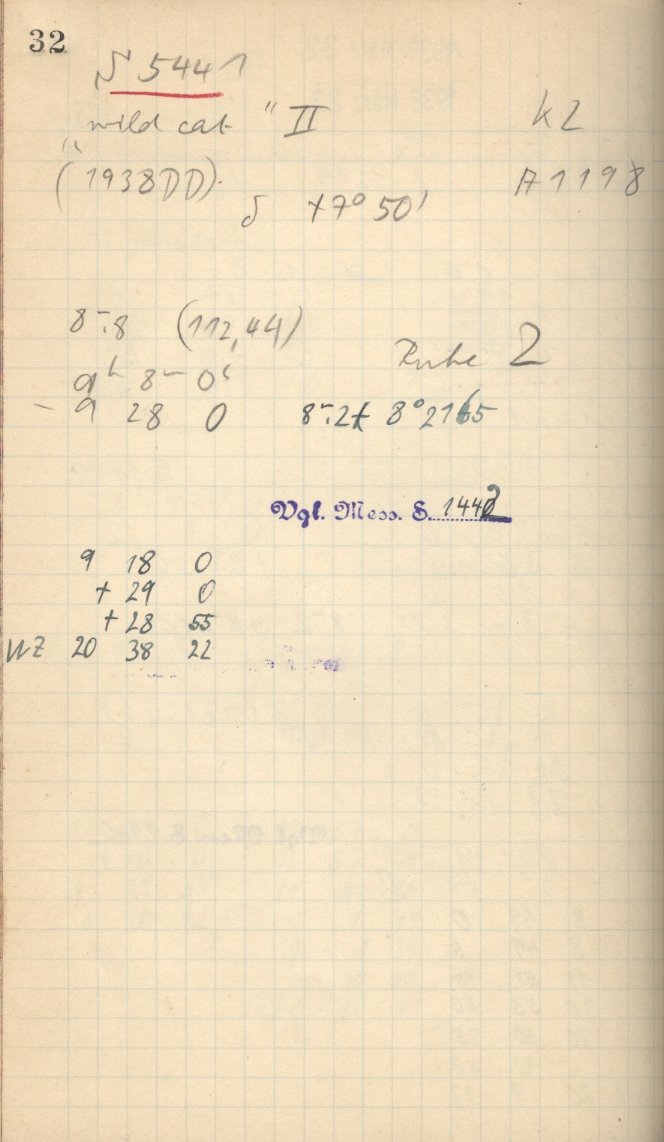 32
S 5441
"wild cat" II k2
(1938DD). A1198
δ +7° 50'
8m.8 (112,44)
Ruhe 2
9h 8m 0s
- 9 28 0 8m.2
Vgl. Mess. S. 1442
9 18 0
+ 29 0
+ 28 55
WZ 20 38 22